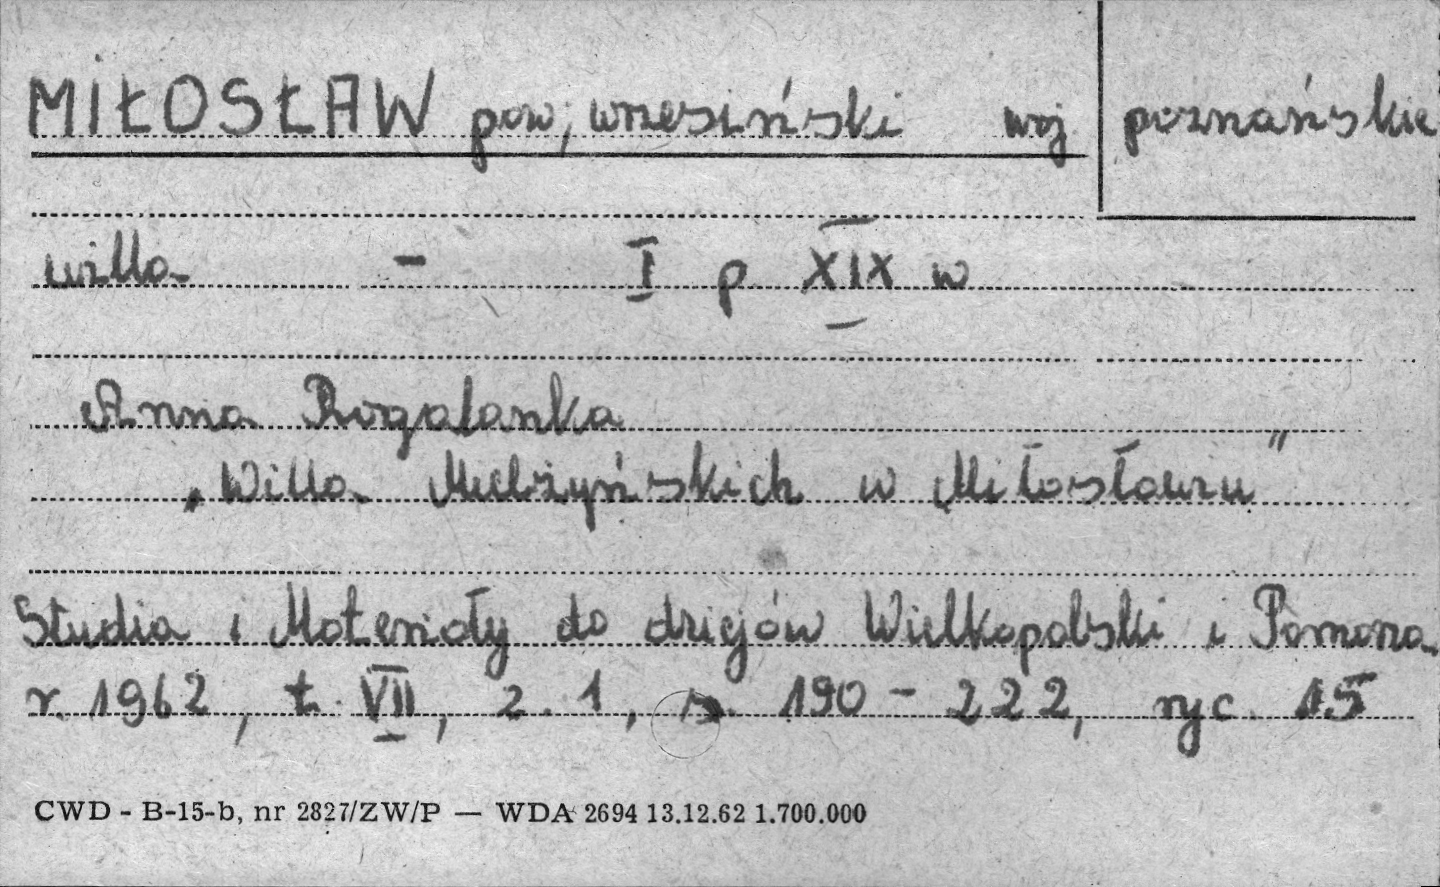 MIŁOSŁAW pow, wrzesiński woj poznańskie
willa - I p XIX w
Anna Rogalanka
„Willa Mielżyńskich w Miłosławiu"
Studia i Materiały do dziejów Wielkopolski i Pomorza
r. 1962, t. VII, z. 1, s. 190-222, ryc 15
CWD - B-15-b, nr 2827/ZW/P — WDA 2694 13.12.62 1.700.000